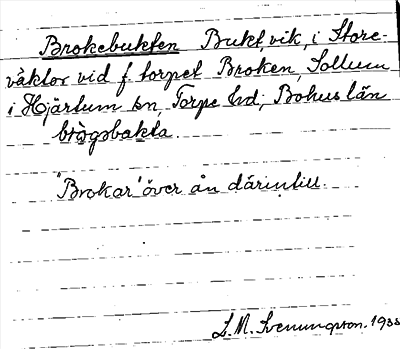 Brokebukten Bukt, vik, i Store-
väktor vid f. torpet Broken, Sollum
i Hjärtum sn, Torpe hd; Bohus län
brògsbakta.
"Brokar" över ån därintill.
S. M. Svenungson. 193